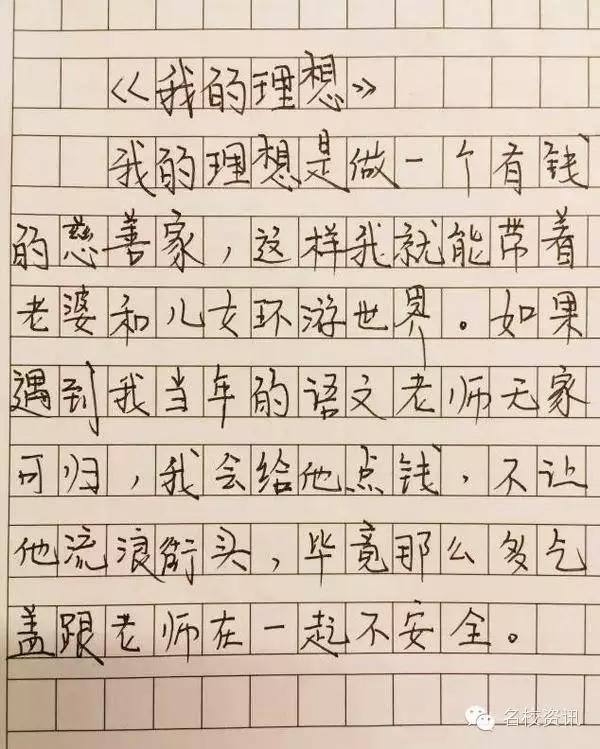 《我的理想》
我的理想是做一个有钱
的慈善家，这样我就能带着
老婆和儿女环游世界。如果
遇到我当年的语文老师无家
可归，我会给他点钱，不让
他流浪街头，毕竟那么多乞
盖跟老师在一起不安全。
名校资讯